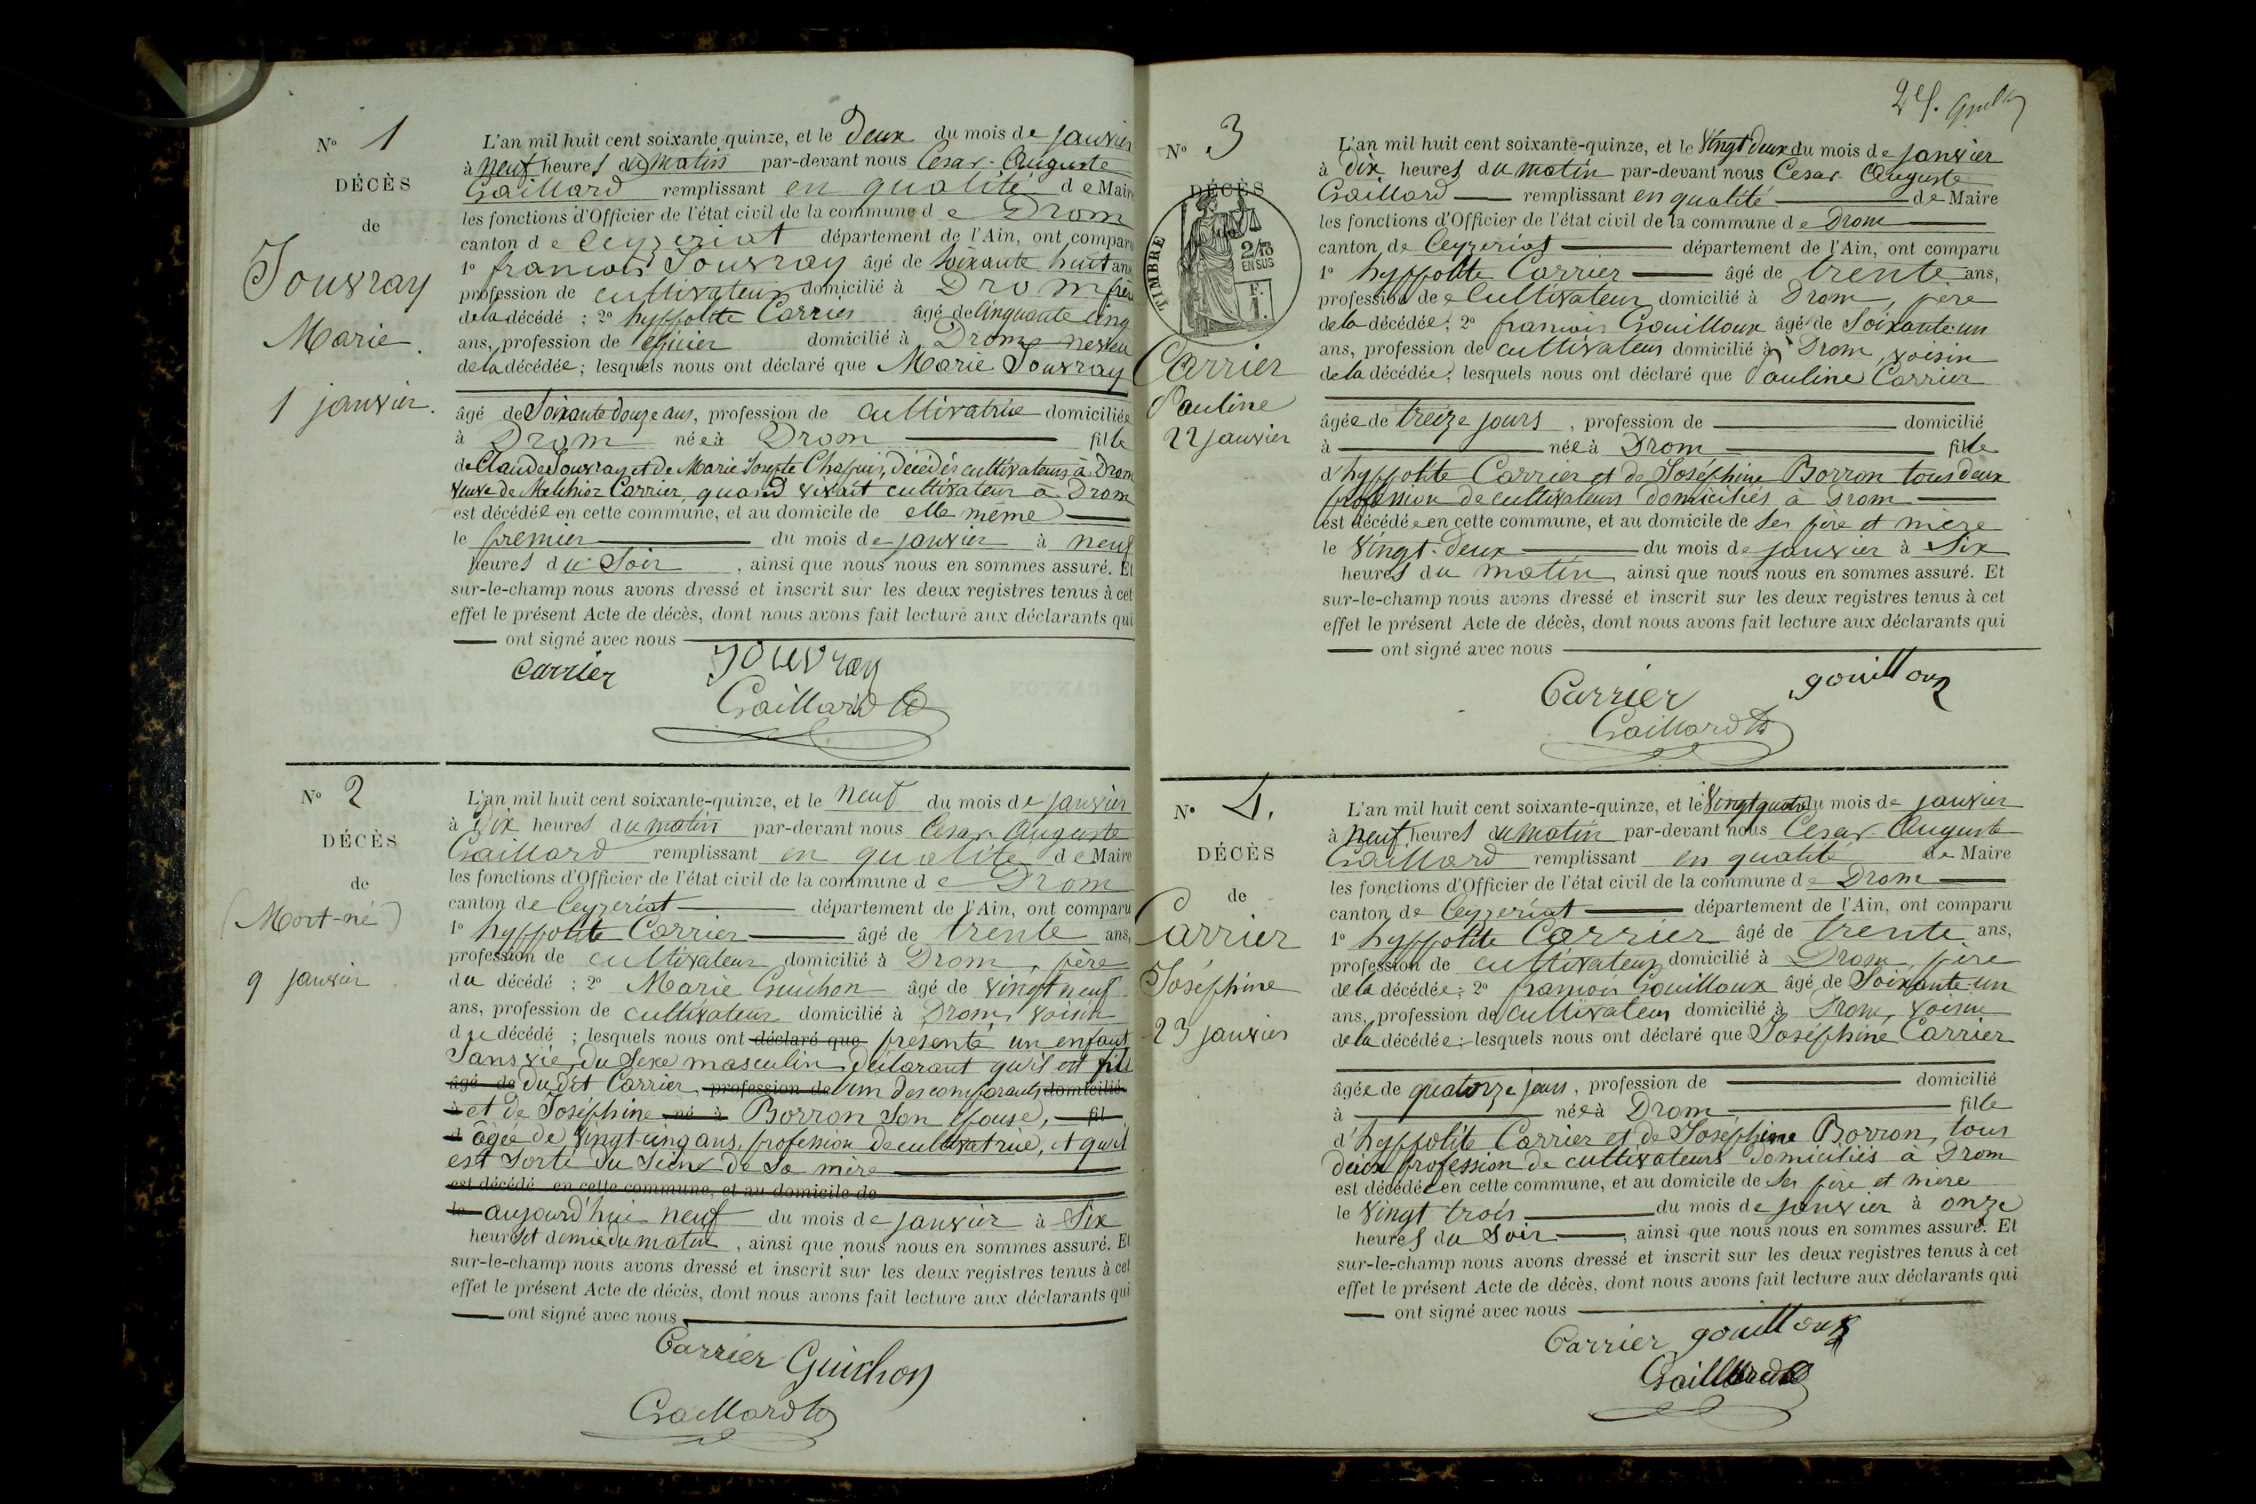 N° 1
DÉCÈS
de
Jouvray
Marie
1 janvier.
L'an mil huit cent soixante quinze, et le deux du mois de janvier
à neuf heures du matin par-devant nous Cesar-Auguste
Gaillard remplissant en qualité de Maire
les fonctions d'Officier de l'état civil de la commune de Drom
canton de Ceyzeriat département de l'Ain, ont comparu
1° francois Jouvray âgé de soixante huit ans
profession de cultivateur domicilié à Drom frère
de la décédé ; 2° hyppolite Carrier âgé de cinquante cinq
ans, profession de domicilié à Drom neveu
de la décédée ; lesquels nous ont déclaré que Marie Jouvray
âgé de Soixante douze ans, profession de cultivatrice domiciliée
à Drom née à Drom fille
de Claude Jouvray et de Marie Josepte Chapuis, décédés cultivateurs à Drom
veuve de Melchior Carrier, quand vivait cultivateur à Drom
est décédée en cette commune, et au domicile de elle même
le premier du mois de janvier à neuf
heures du Soir, ainsi que nous nous en sommes assuré. Et
sur-le-champ nous avons dressé et inscrit sur les deux registres tenus à cet
effet le présent Acte de décès, dont nous avons fait lecture aux déclarants qui
ont signé avec nous
Carrier Jouvray
Gaillard
N° 2
DÉCÈS
de
(Mort-né)
9 janvier
L'an mil huit cent soixante-quinze, et le neuf du mois de janvier
à Dix heures du matin par-devant nous Cesar-Auguste
Gaillard remplissant en qualité de Maire
les fonctions d'Officier de l'état civil de la commune de Drom
canton de Ceyzeriat département de l'Ain, ont comparu
1° hyppolite Carrier âgé de trente ans,
profession de cultivateur domicilié à Drom, père
du décédé ; 2° Marie Guichon âgé de vingt neuf
ans, profession de cultivateur domicilié à Drom, voisin
du décédé ; lesquels nous ont déclaré que présenté un enfant
Sans vie, du Sexe masculin, déclarant qu'il est fils
âgé de du dit Carrier, profession de l'un des comparants, domicilié
à et de Joséphine né à Borron Son épouse, fil
d âgée de vingt-cinq ans, profession de cultivatrice, et qu'il
est Sorti du Sein de Sa mère
est décédé en cette commune, et au domicile de
le aujourd'hui neuf du mois de janvier à Six
heures et demie du matin, ainsi que nous nous en sommes assuré. Et
sur-le-champ nous avons dressé et inscrit sur les deux registres tenus à cet
effet le présent Acte de décès, dont nous avons fait lecture aux déclarants qui
ont signé avec nous
Carrier Guichon
Gaillard
N° 3
DÉCÈS
TIMBRE
2/10
EN SUS
F.
1.
Carrier
Pauline
22 janvier
L'an mil huit cent soixante-quinze, et le Vingt deux du mois de janvier
à Dix heures du matin par-devant nous Cesar-Auguste
Gaillard remplissant en qualité de Maire
les fonctions d'Officier de l'état civil de la commune de Drom
canton de Ceyzeriat département de l'Ain, ont comparu
1° hyppolite Carrier âgé de trente ans,
profession de Cultivateur domicilié à Drom, père
de la décédée; 2° francois Gouilloux âgé de Soixante-un
ans, profession de cultivateur domicilié à Drom, voisin
de la décédée; lesquels nous ont déclaré que Pauline Carrier
âgée de treize jours, profession de domicilié
à née à Drom fille
d'hyppolite Carrier et de Joséphine Borron tous deux
profession de cultivateurs domiciliés à Drom
est décédée en cette commune, et au domicile de Ses père et mère
le Vingt-deux du mois de janvier à Six
heures du matin ainsi que nous nous en sommes assuré. Et
sur-le-champ nous avons dressé et inscrit sur les deux registres tenus à cet
effet le présent Acte de décès, dont nous avons fait lecture aux déclarants qui
ont signé avec nous
Carrier gouilloux
Gaillard
N° 4.
DÉCÈS
de
Carrier
Joséphine
23 janvier
L'an mil huit cent soixante-quinze, et le Vingt quatre du mois de janvier
à neuf heures du matin par-devant nous Cesar-Auguste
Gaillard remplissant en qualité de Maire
les fonctions d'Officier de l'état civil de la commune de Drom
canton de Ceyzeriat département de l'Ain, ont comparu
1° hyppolite Carrier âgé de trente ans,
profession de cultivateur domicilié à Drom, père
de la décédée; 2° francois Gouilloux âgé de Soixante-un
ans, profession de cultivateur domicilié à Drom, voisin
de la décédée; lesquels nous ont déclaré que Joséphine Carrier
âgée de quatorze jours, profession de domicilié
à née à Drom, fille
d'hyppolite Carrier et de Joséphine Borron, tous
deux profession de cultivateurs domiciliés à Drom
est décédée en cette commune, et au domicile de Ses père et mère
le Vingt trois du mois de janvier à onze
heures du Soir, ainsi que nous nous en sommes assuré. Et
sur-le-champ nous avons dressé et inscrit sur les deux registres tenus à cet
effet le présent Acte de décès, dont nous avons fait lecture aux déclarants qui
ont signé avec nous
Carrier gouilloux
Gaillard